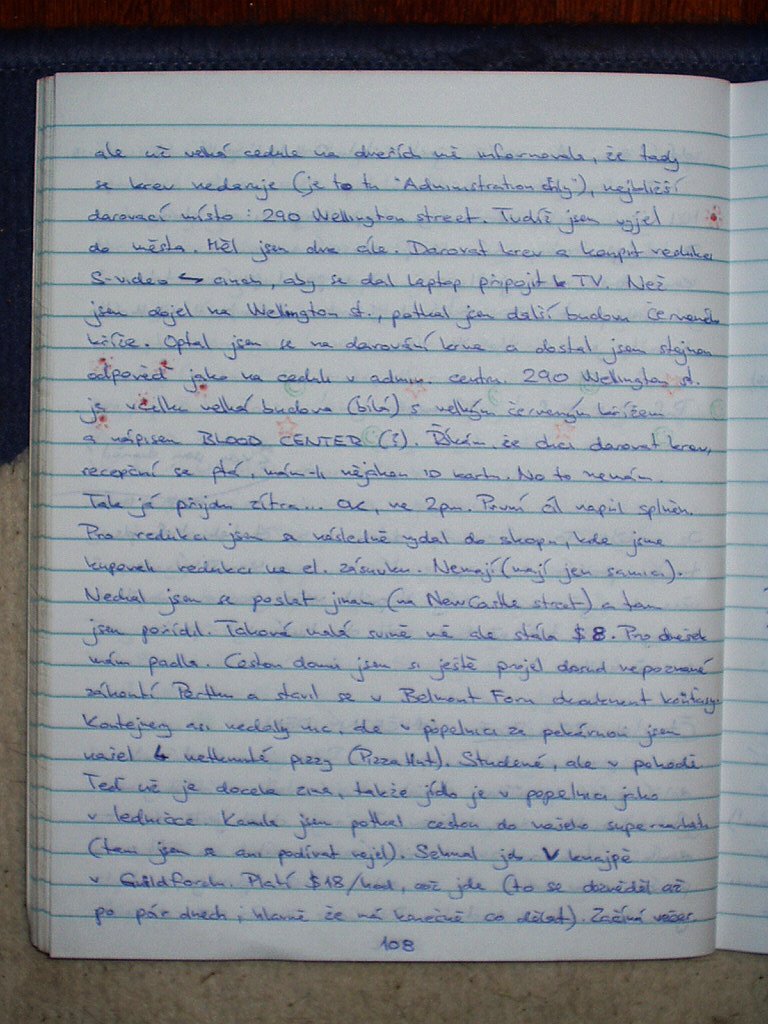 ale už velká cedule na dveřích mě informovala, že tady
se krev nedaruje (je to tu "Administration only"), nejbližší
darovací místo: 290 Wellington street. Tudíž jsem vyjel
do města. Měl jsem dva cíle. Darovat krev a koupit redukci
S-video cinch, aby se dal laptop připojit k TV. Než
jsem dojel na Wellington st., potkal jsem další budovu Červeného
kříže. Optal jsem se na darování krve a dostal jsem stejnou
odpověď jako na ceduli v admin. centru. 290 Wellington st.
je vcelku velká budova (bílá) s velkým červeným křížem
a nápisem BLOOD CENTER (S). Říkám, že chci darovat krev,
recepční se ptá, mám-li nějakou ID kartu. No to nemám.
Tak já přijdu zítra... OK, ve 2pm. První cíl napůl splněn.
Pro redukci jsem se následně vydal do shopu, kde jsme
kupovali redukci na el. zásuvku. Nemají (mají jen samici).
Nechal jsem se poslat jinam (na Newcastle street) a tam
jsem pořídil. Taková malá svině mě ale stála $8. Pro dnešek
mám padla. Cestou domů jsem si ještě projel dosud nepoznané
zákoutí Perthu a stavil se v Belmont Foru
Kontejnery asi nedaly nic, ale v popelnici za pekárnou jsem
našel 4 netknuté pizzy (Pizza Hut). Studené, ale v pohodě.
Teď už je docela zima, takže jídlo je v popelnici jako
v ledničce. Kamila jsem potkal cestou do našeho supermarketu
(tam jsem se ani podívat nejel). Sehnal job. V knajpě
v Guildfordu. Platí $18/hod, což jde (to se dozvěděl až
po pár dnech, hlavně že má konečně co dělat). Začíná večer
108